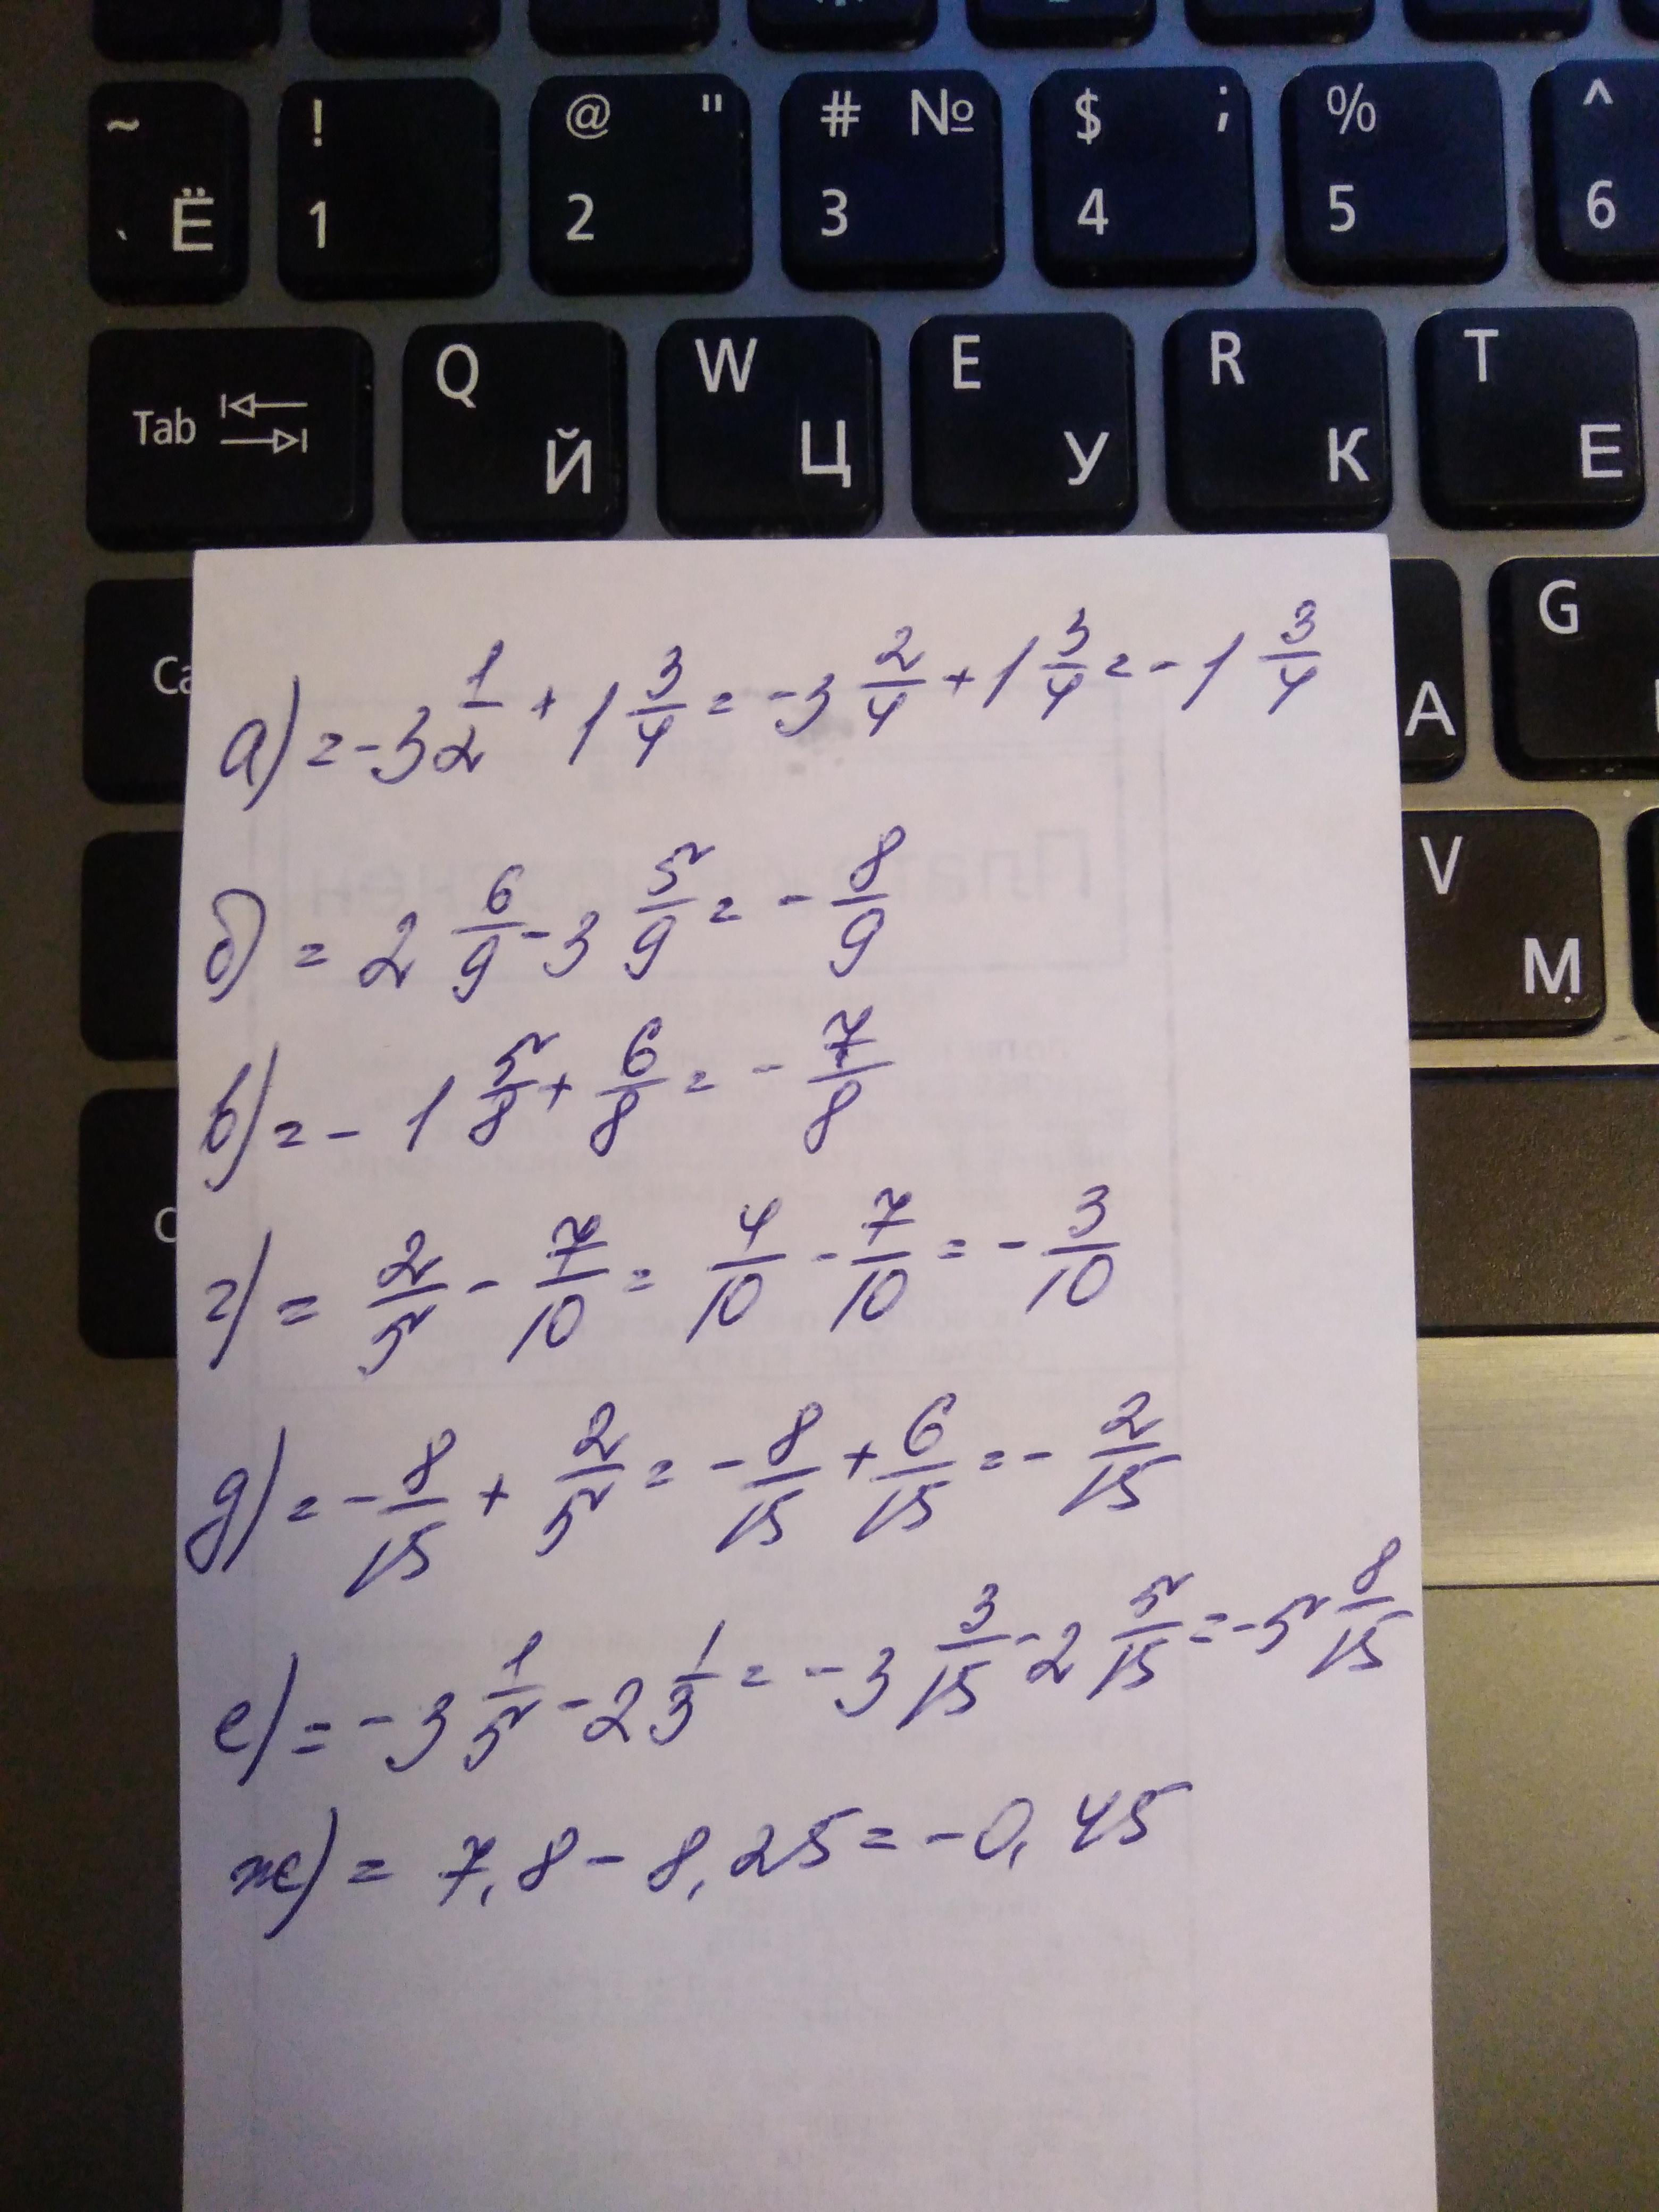 ~ Ё
! 1
@ " 2
# № 3
$ ; 4
% 5
^ 6
Tab
Q Й
W Ц
E У
R К
T Е
Ca
А
G
V М
C
а) = -3 1/2 + 1 3/4 = -3 2/4 + 1 3/4 = -1 3/4
б) = 2 6/9 - 3 5/9 = - 8/9
в) = - 1 5/8 + 6/8 = - 7/8
г) = 2/5 - 7/10 = 4/10 - 7/10 = - 3/10
д) = - 8/15 + 2/5 = - 8/15 + 6/15 = - 2/15
е) = -3 1/5 - 2 1/3 = -3 3/15 - 2 5/15 = -5 8/15
ж) = 7,8 - 8,25 = -0,45